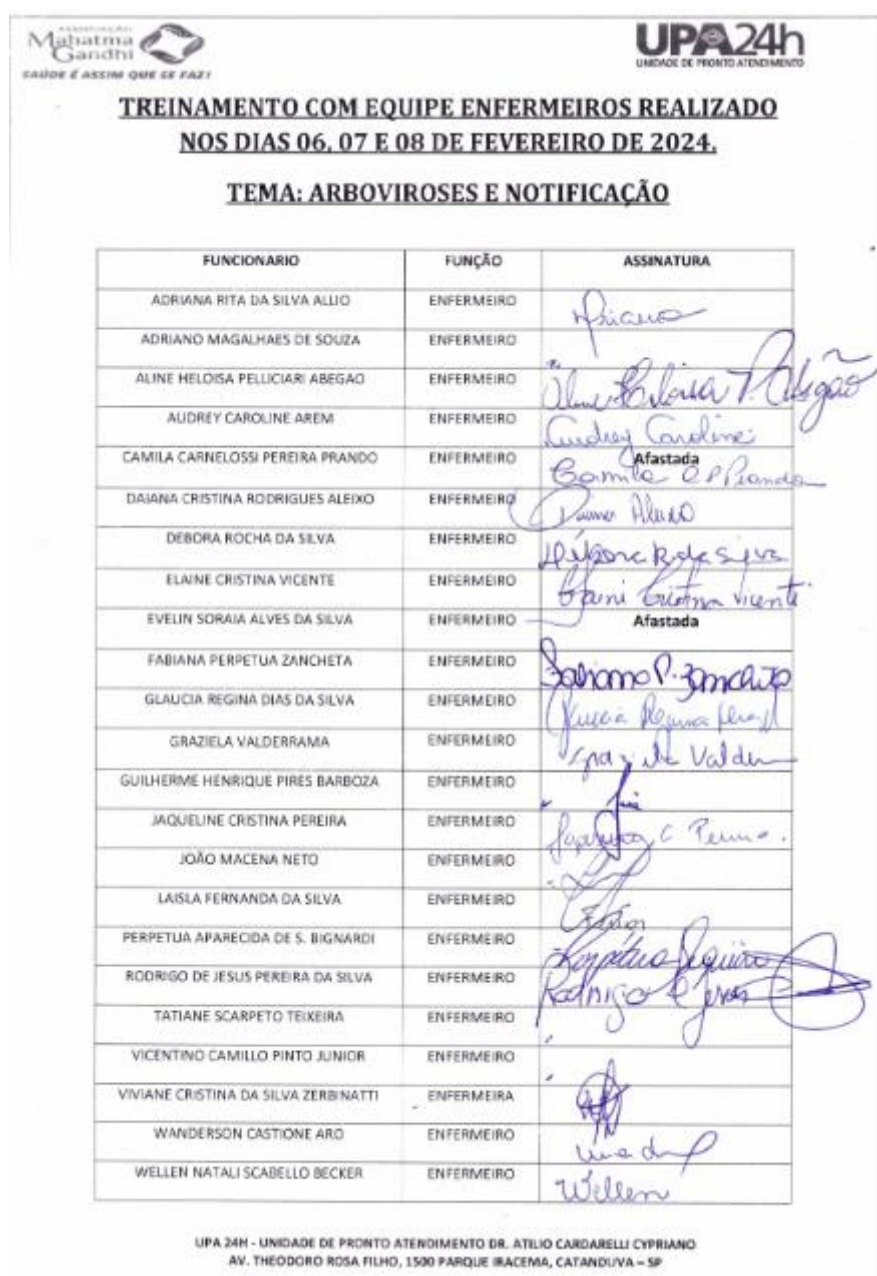 ASSOCIAÇÃO
Mahatma
Gandhi
SAÚDE É ASSIM QUE SE FAZ!
UPA24h
UNIDADE DE PRONTO ATENDIMENTO
TREINAMENTO COM EQUIPE ENFERMEIROS REALIZADO
NOS DIAS 06, 07 E 08 DE FEVEREIRO DE 2024.
TEMA: ARBOVIROSES E NOTIFICAÇÃO
FUNCIONARIO FUNÇÃO ASSINATURA
ADRIANA RITA DA SILVA ALLIO ENFERMEIRO
ADRIANO MAGALHAES DE SOUZA ENFERMEIRO
ALINE HELOISA PELLICIARI ABEGAO ENFERMEIRO Aline Heloisa P. Abegão
AUDREY CAROLINE AREM ENFERMEIRO Audrey Caroline
CAMILA CARNELOSSI PEREIRA PRANDO ENFERMEIRO Afastada Camila C P Prando
DAIANA CRISTINA RODRIGUES ALEIXO ENFERMEIRO
DEBORA ROCHA DA SILVA ENFERMEIRO Débora R da Silva
ELAINE CRISTINA VICENTE ENFERMEIRO Elaini Cristina Vicenti
EVELIN SORAIA ALVES DA SILVA ENFERMEIRO Afastada
FABIANA PERPETUA ZANCHETA ENFERMEIRO Fabiana P. Zancheta
GLAUCIA REGINA DIAS DA SILVA ENFERMEIRO Glaucia Regina
GRAZIELA VALDERRAMA ENFERMEIRO Graziela Valder
GUILHERME HENRIQUE PIRES BARBOZA ENFERMEIRO
JAQUELINE CRISTINA PEREIRA ENFERMEIRO
JOÃO MACENA NETO ENFERMEIRO
LAISLA FERNANDA DA SILVA ENFERMEIRO
PERPETUA APARECIDA DE S. BIGNARDI ENFERMEIRO Perpetua
RODRIGO DE JESUS PEREIRA DA SILVA ENFERMEIRO Rodrigo de Jesus
TATIANE SCARPETO TEIXEIRA ENFERMEIRO
VICENTINO CAMILLO PINTO JUNIOR ENFERMEIRO
VIVIANE CRISTINA DA SILVA ZERBINATTI ENFERMEIRA
WANDERSON CASTIONE ARO ENFERMEIRO
WELLEN NATALI SCABELLO BECKER ENFERMEIRO Wellen
UPA 24H - UNIDADE DE PRONTO ATENDIMENTO DR. ATILIO CARDARELLI CYPRIANO
AV. THEODORO ROSA FILHO, 1500 PARQUE IRACEMA, CATANDUVA – SP